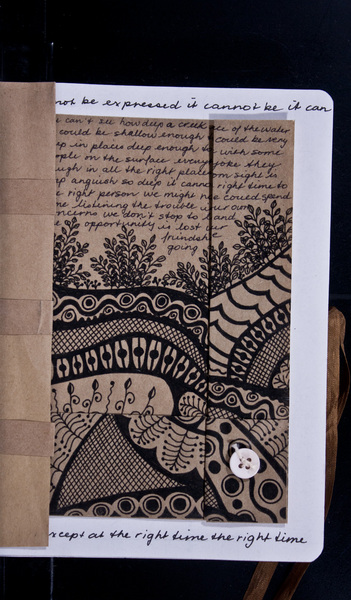 not be expressed it cannot be it can
can't see how deep a creek of the water
could be shallow enough could be very
in places deep enough to wish some
on the surface every joke they
in all the right places on sight is
anguish so deep it cannot right time to
right person we might not could spend
listening the trouble our own
we don't stop to and
opportunity is lost our
friendship
going
except at the right time the right time